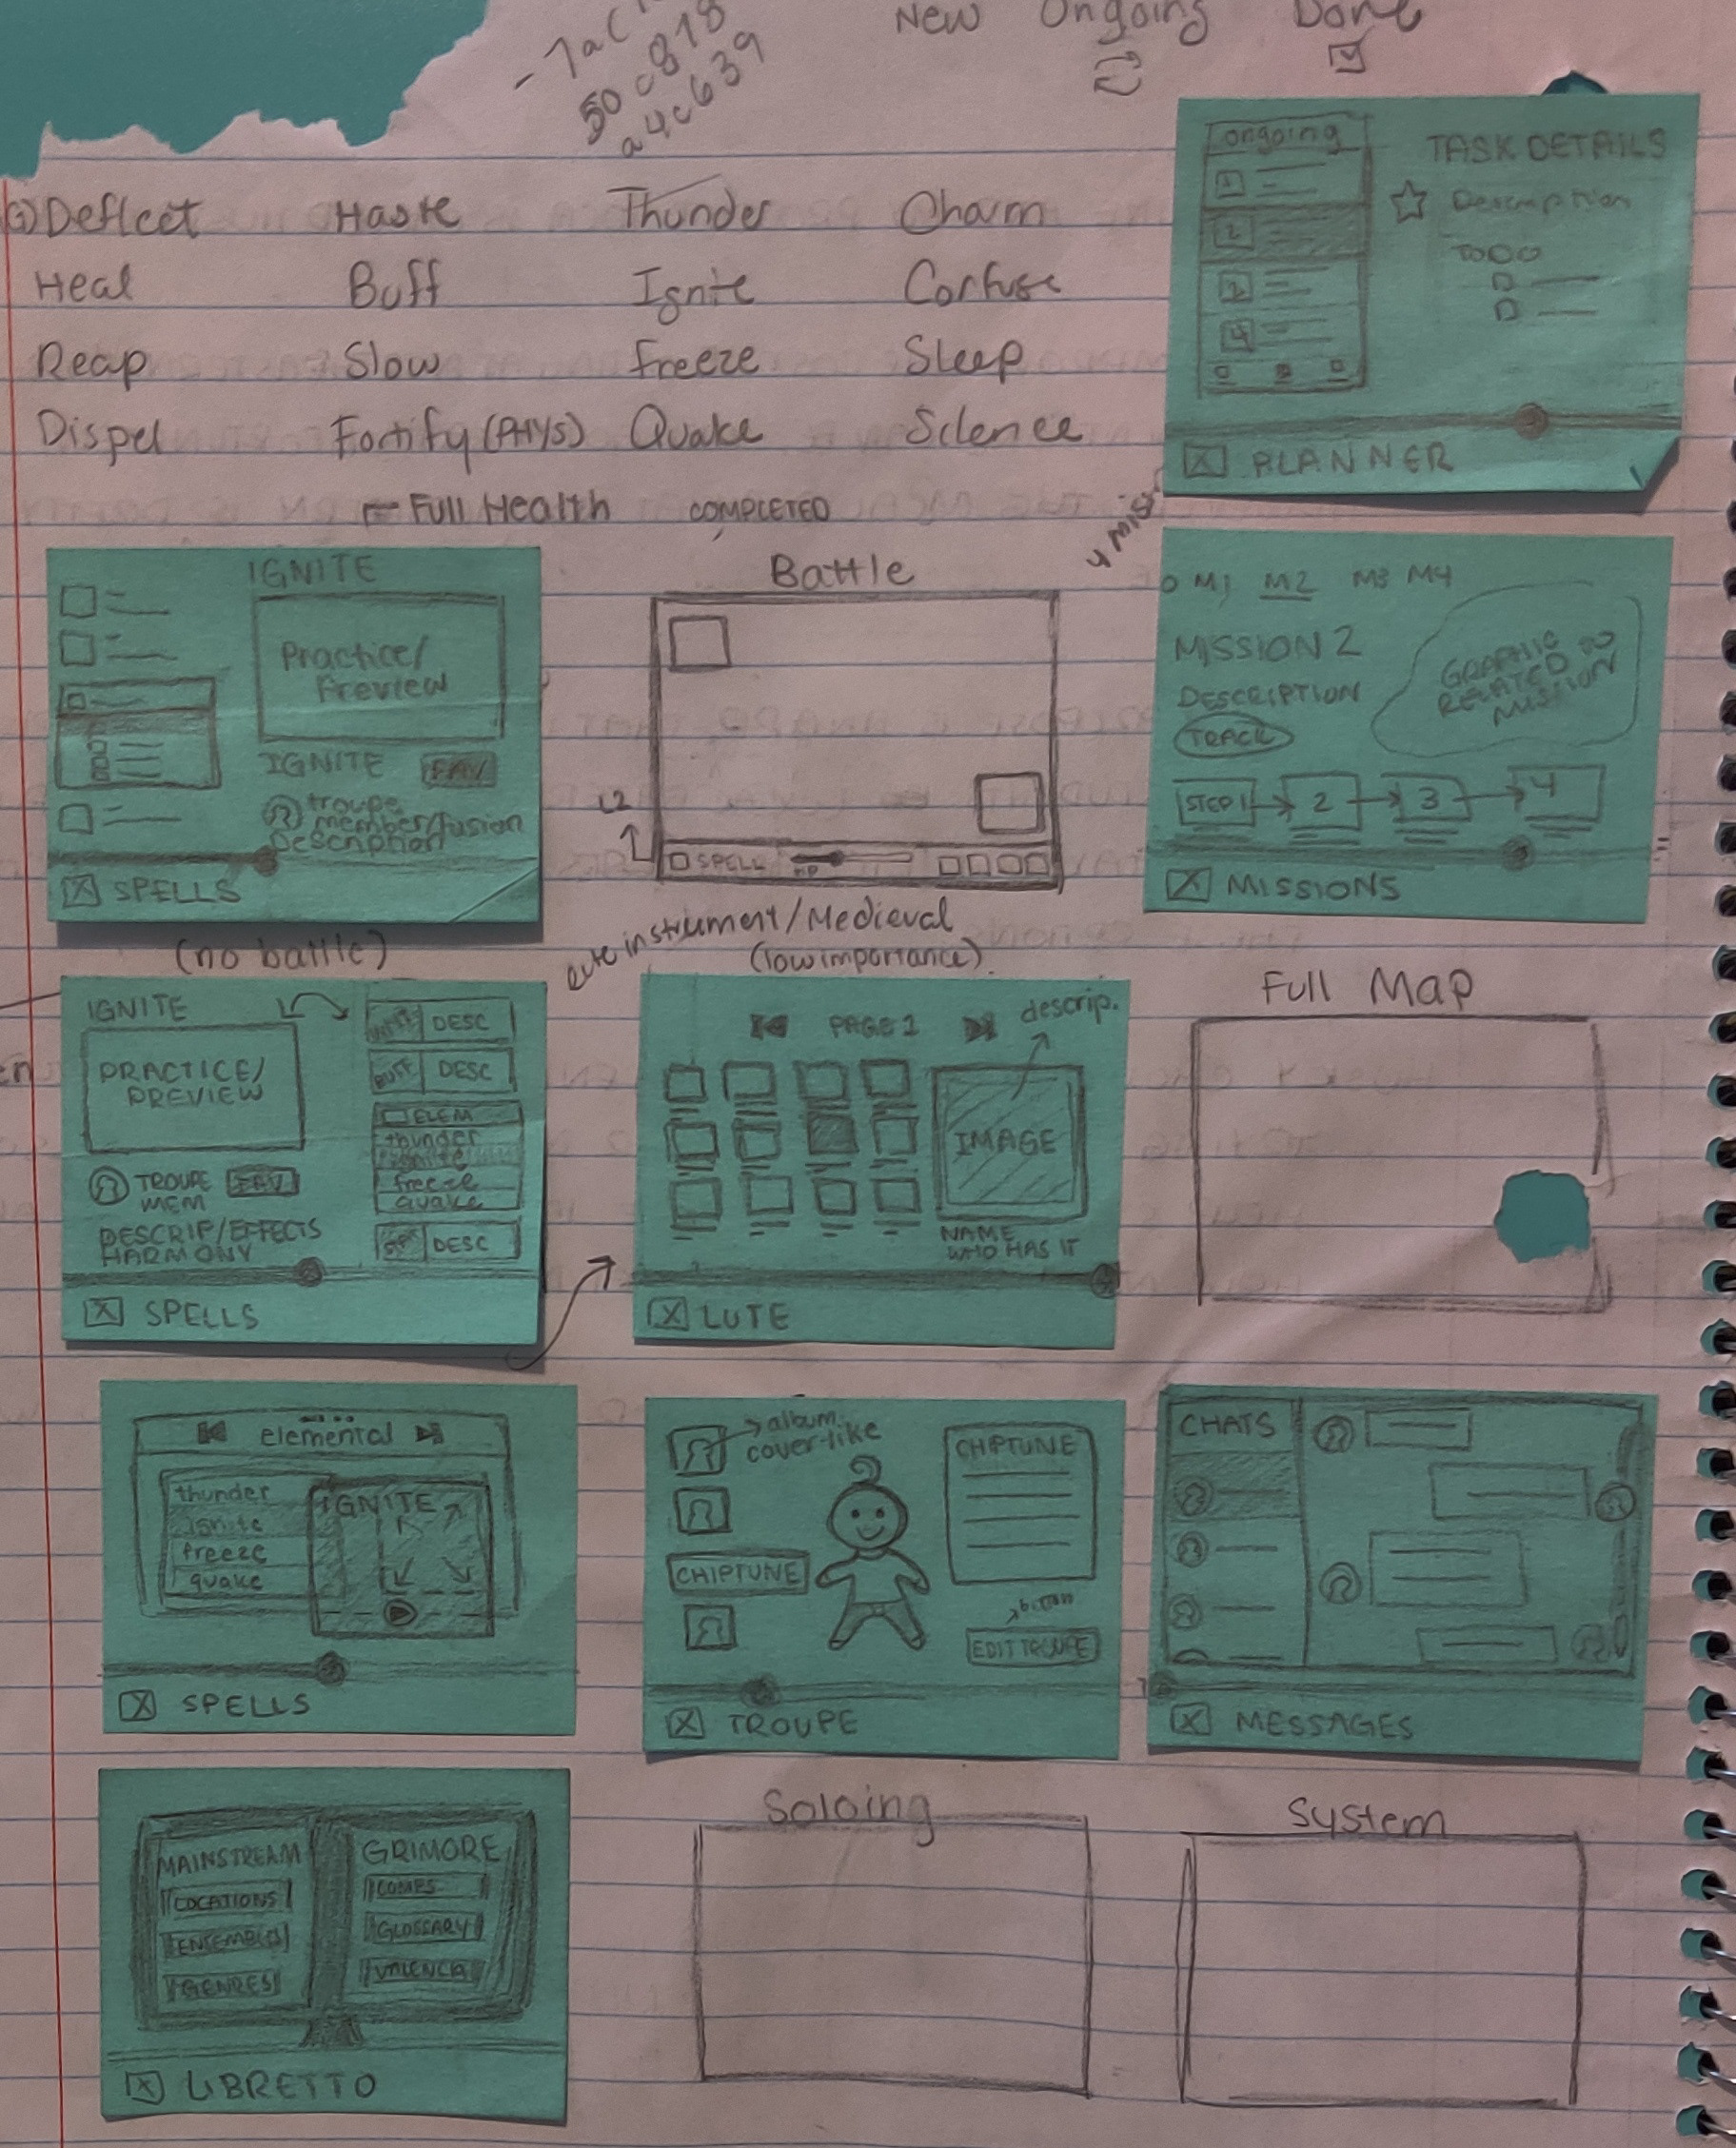 New Ongoing Done
50c878
a4c639
Deflect Haste Thunder Charm
Heal Buff Ignite Confuse
Reap Slow Freeze Sleep
Dispel Fortify (PHYS) Quake Silence
Full Health COMPLETED
ongoing
1
2
3
4
TASK DETAILS
Description
TODO
X PLANNER
IGNITE
Practice/
Preview
IGNITE FAV
troupe
member/fusion
Description
X SPELLS
(no battle)
Battle
L2
SPELL
HP
M1 M2 M3 M4
MISSION 2
DESCRIPTION
TRACK
GRAPHIC
RELATED TO
MISSION
STEP 1 2 3 4
X MISSIONS
instrument/Medieval
(low importance)
IGNITE
PRACTICE/
PREVIEW
TROUPE
MEM
FAV
DESCRIP/EFFECTS
HARMONY
DESC
BUFF DESC
ELEM
thunder
ignite
freeze
quake
DESC
X SPELLS
PAGE 1
descrip.
IMAGE
NAME
WHO HAS IT
X LUTE
Full Map
elemental
thunder
ignite
freeze
quake
IGNITE
X SPELLS
album
cover-like
CHIPTUNE
CHIPTUNE
button
EDIT TROUPE
X TROUPE
CHATS
X MESSAGES
MAINSTREAM
LOCATIONS
ENSEMBLES
GENRES
GRIMORE
COMPS
GLOSSARY
VALENCIA
X LIBRETTO
Soloing
System